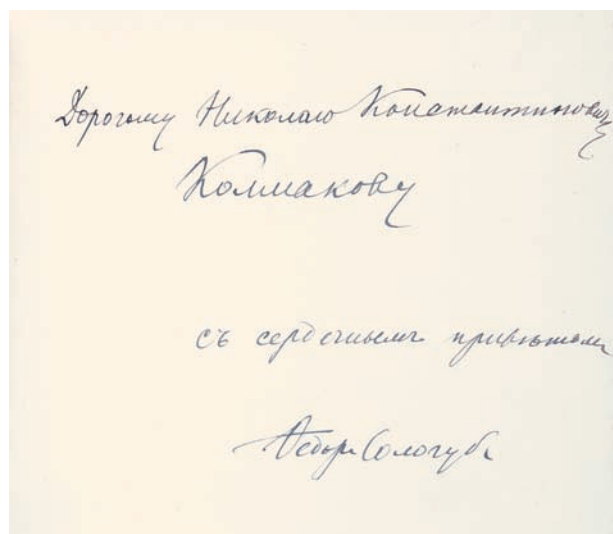 Дорогому Николаю Константиновичу
Колмакову
съ сердечнымъ привѣтомъ
Ѳедоръ Сологубъ